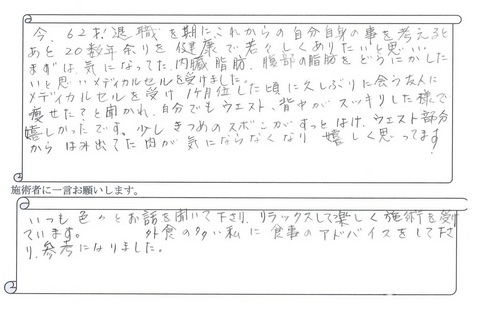 今、62才 退職を期に、これからの自分自身の事を考えると
あと20数年余りを健康で若々しくありたいと思い
まずは、気になってた、内臓脂肪、腹部の脂肪をどうにかした
いと思いメディカルセルを受けました。
メディカルセルを受け 1ヶ月位した頃に久しぶりに会う友人に
痩せたてと聞かれ、自分でもウエスト、背中がスッキリした様で
嬉しかったです。少しきつめのズボンがすっとはけ、ウエスト部分
からはみ出てた肉が気にならなくなり 嬉しく思ってます!
施術者に一言お願いします。
いつも色々とお話を聞いて下さり、リラックスして楽しく施術を受け
ています。 外食の多い私に食事のアドバイスをして下さ
り、参考になりました。